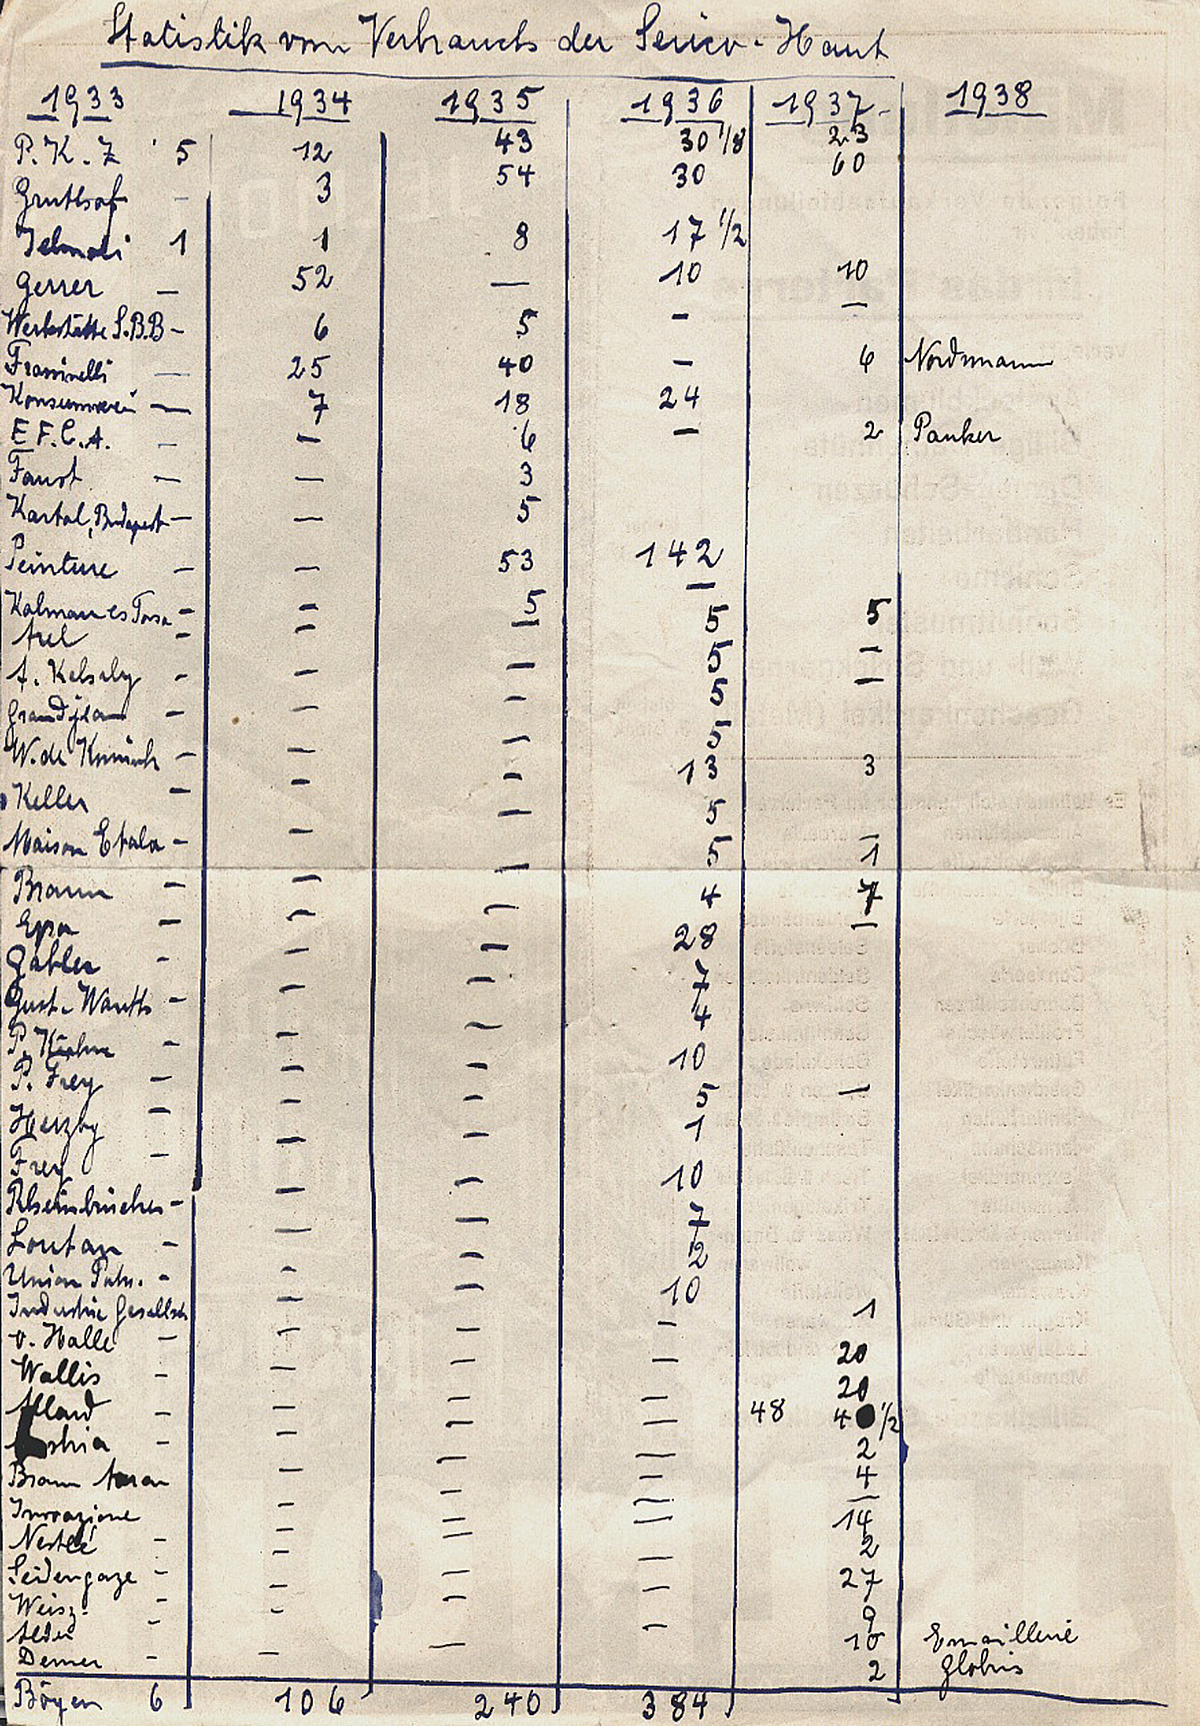 Statistik vom Verbrauch der Serico-Haut
1933 1934 1935 1936 1937 1938
P. K. Z 5 12 43 30 1/8 23
Gruthof — 3 54 30 60
Jelmoli 1 1 8 17 1/2
Gerrer — 52 — 10 10
Werkstätte S.B.B — 6 5 — —
Frassinelli — 25 40 — 6 Nordmann
Konsumverein — 7 18 24
E.F.C.A. — — 6 — 2 Panker
Faust — — 3
Kartal, Budapest — — 5
Peinture — — 53 142
Kalman es Tarsa — — 5 — 5
Axel — — — 5 —
A. Kelsely — — — 5 —
Grandjean — — — 5
W. de — — — 5
Keller — — — 13 3
Maison Etala — — — 5 —
Braun — — — 5 1
Epa — — — 4 7
Gabler — — — 28 —
Gust. — — — 7
P. — — — 4
P. Frey — — — 10
Herzog — — — 5 —
Frey — — — 1
Rheinbrücke — — — 10
Loutan — — — 7
Union — — — 2
Industrie Gesellsch — — 10 1
v. Halle — — — — 20
Wallis — — — — 20
Allard — — — — 48 4 1/2
— — — — 2
Braun — — — 4
Innovazione — — — 14
Nestlé — — — — 2
Seidengaze — — — — 27
Weisz — — — — 9
— — — 10 Emaillerie
Demer — — — 2 Globus
Bögen 6 106 240 384